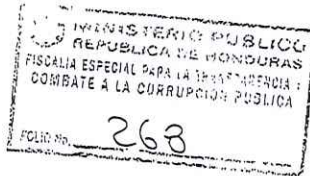 MINISTERIO PUBLICO
REPUBLICA DE HONDURAS
FISCALIA ESPECIAL PARA LA TRANSPARENCIA Y
COMBATE A LA CORRUPCION PUBLICA
FOLIO No. 268